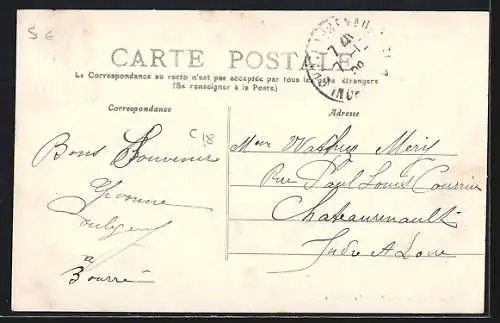 5 €
CARTE POSTALE
La Correspondance au recto n'est pas acceptée par tous les pays étrangers
(Se renseigner à la Poste)
Correspondance
Adresse
C18
Bons Souvenirs
Yvonne
à
Bourré
Mme Méry
Rue Paul Louis Courrier
Chateaurenault
Indre & Loire